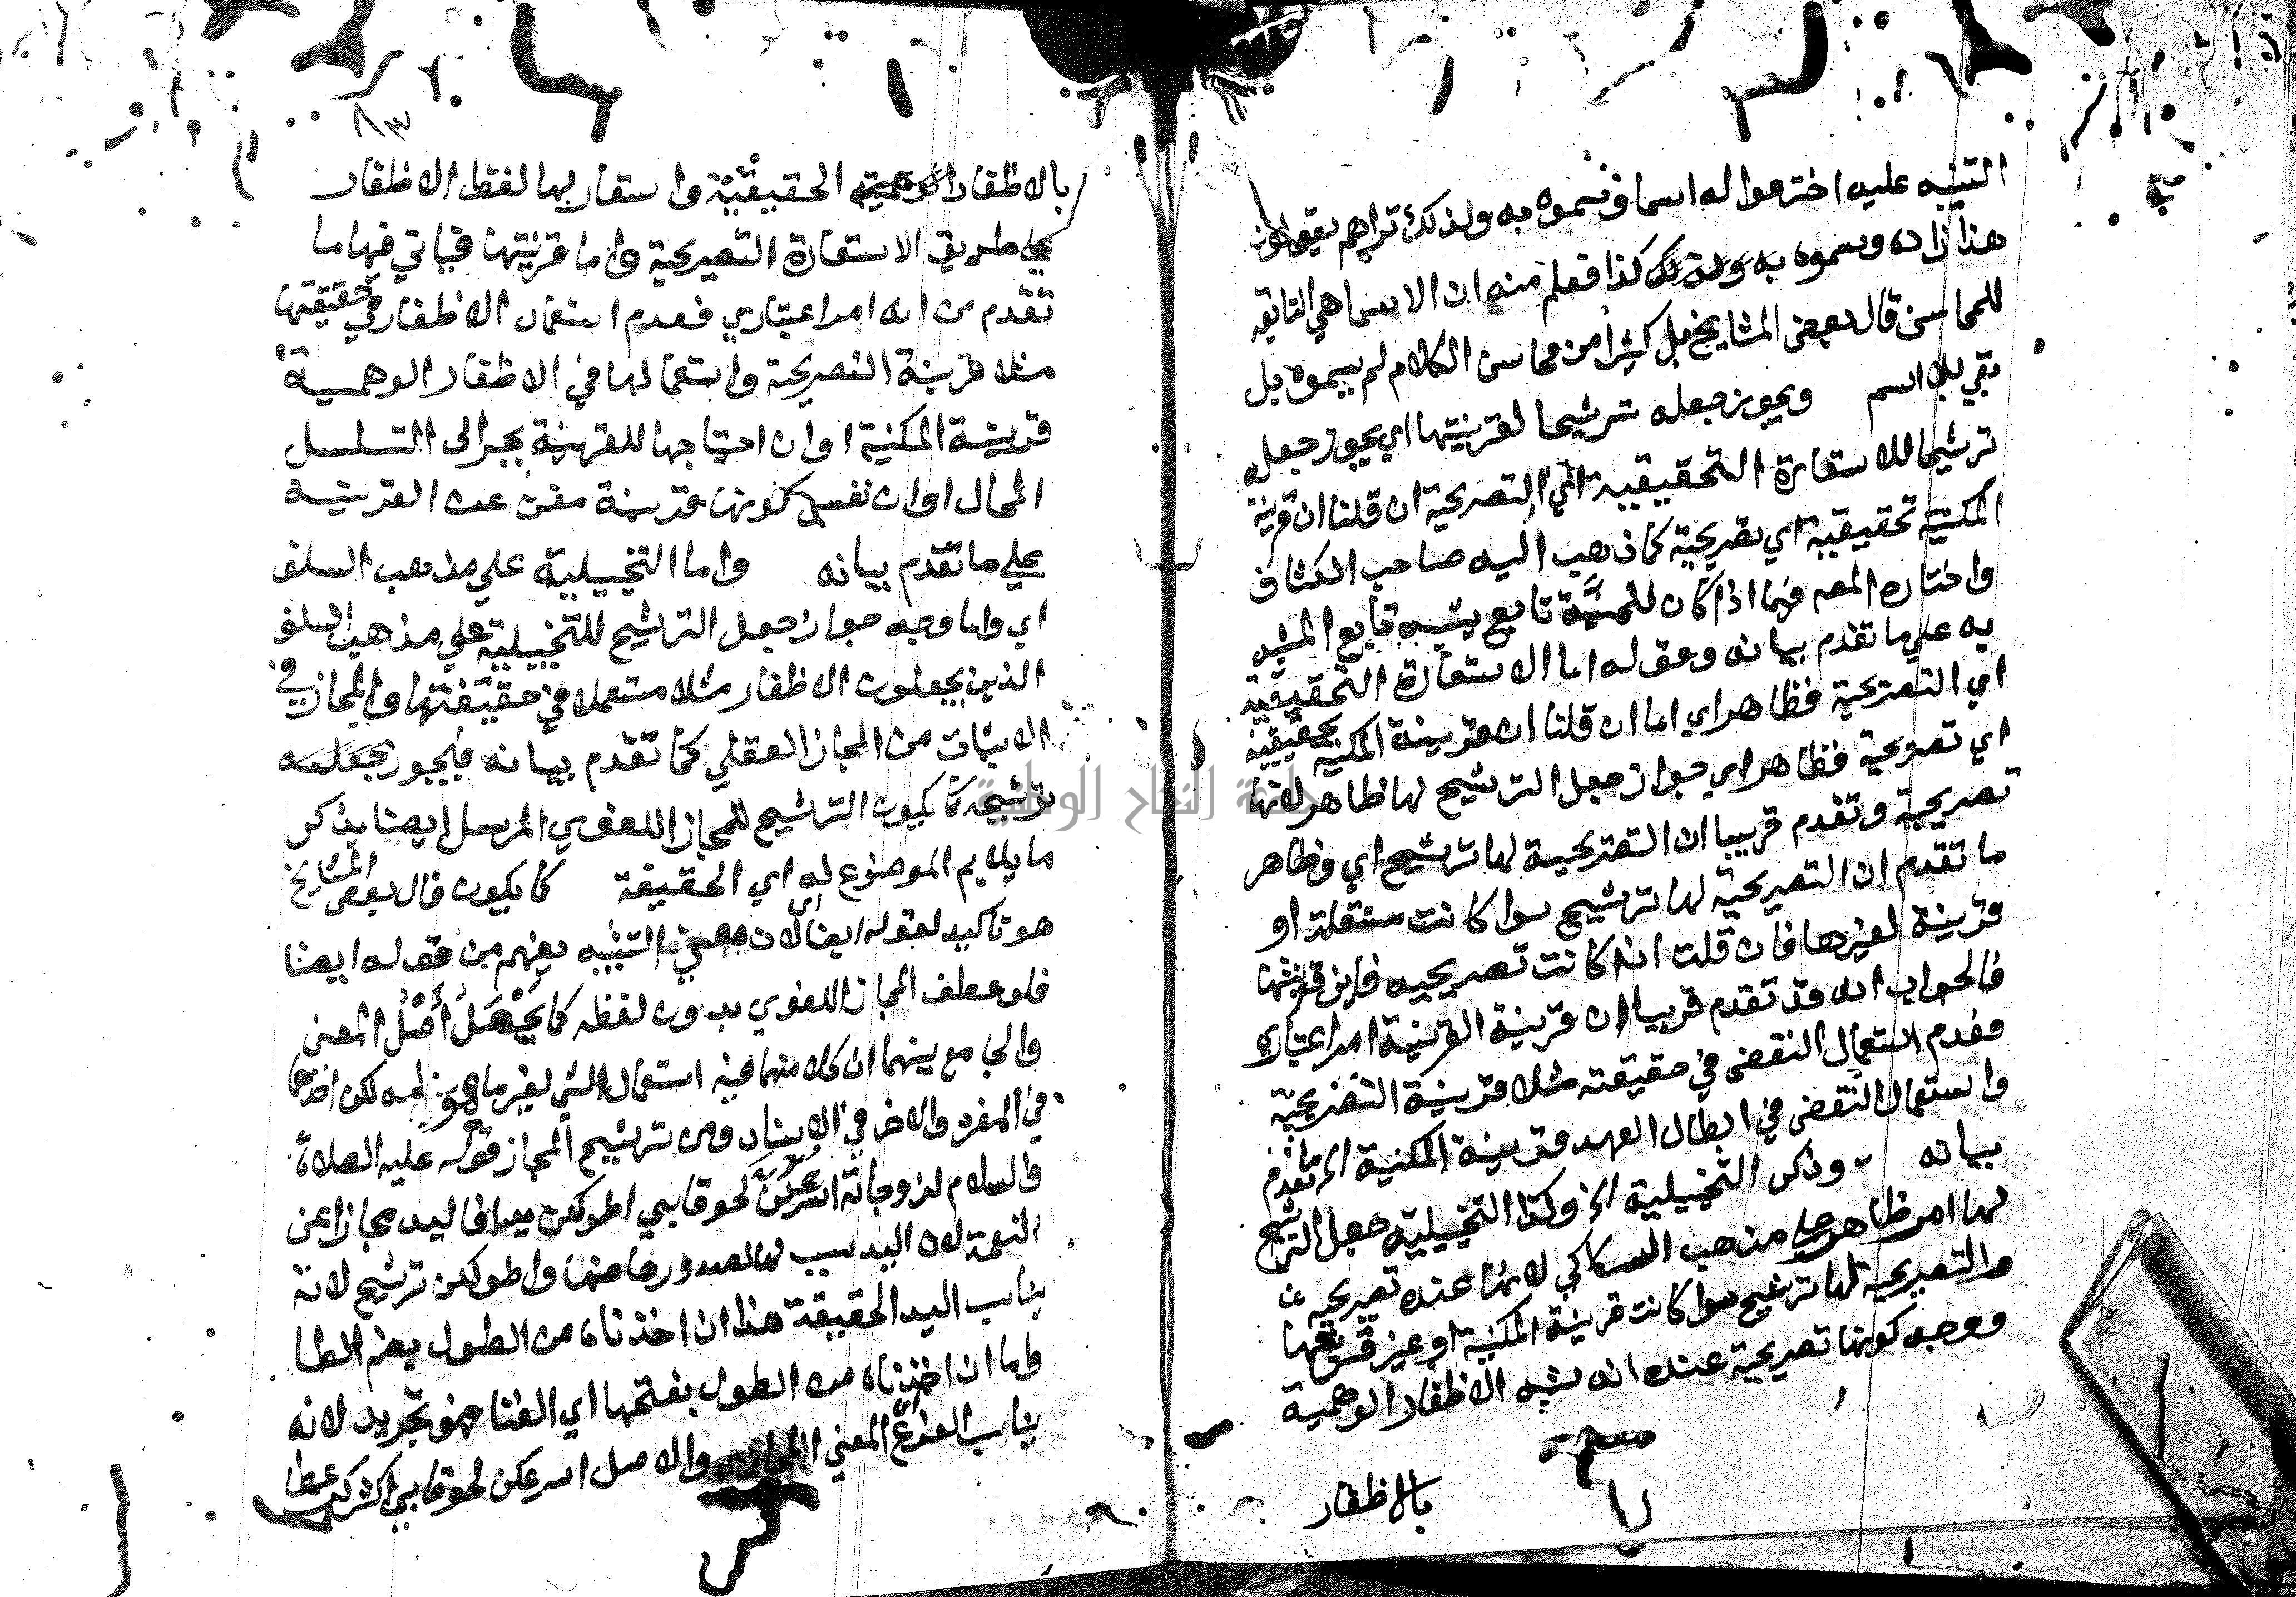 التنبيه عليه اخترعوا له اسما وسموه به ولذلك تراهم يقولون
هذا زاده وسموه به كذا فعلم منه ان الاسما هي التابعة
للمحاسن قال بعض المشايخ بل كثيرا من محاسن الكلام لم يسموه بل
بقي بلا اسم ويجوز جعله ترشيحا لقرينتها اي يجوز جعله
ترشيحا للاستعارة التحقيقية اي التصريحية ان قلنا ان قرينة
المكنية تحقيقية اي تصريحية كما ذهب اليه صاحب الكشاف
واختاره المصه فيما اذا كان للمشبه تابع يشبه تابع المشبه
به علي ما تقدم بيانه وقوله اما الاستعارة التحقيقية
اي التصريحية فظاهر اي اما ان قلنا ان قرينة المكنية تحقيقية
اي تصريحية فظاهر اي جواز جعل الترشيح لها ظاهر لانها
تصريحية وتقدم قريبا ان التصريحية لها ترشيح اي وظاهر
ما تقدم ان التصريحية لها ترشيح سوا كانت مستقلة او
قرينة لغيرها فان قلت اذا كانت تصريحيه فاين قرينتها
فالجواب انه قد تقدم قريبا ان قرينة القرينة امر اعتباري
فعدم استعمال النقض في حقيقته مثلا قرينة التصريحية
واستعمال النقض في ابطال العهد قرينة المكنية الي ما تقدم
بيانه وذكر التخييلية الخ وكذا التخييلية جعل الترشيح
لها امر ظاهر علي مذهب السكاكي لانها عنده تصريحية
والتصريحية لها ترشيح سوا كانت قرينة المكنية او غير قرينتها
ووجه كونها تصريحية عنده انه يشبه الاظفار الوهمية
بالاظفار
٨٣
بالاظفار الحقيقية واستعار لها لفظ الاظفار
علي طريق الاستعارة التصريحية واما قرينتها فياتي فيها ما
تقدم من انه امر اعتباري فعدم استعمال الاظفار في حقيقتها
مثلا قرينة التصريحية واستعمالها في الاظفار الوهمية
قرينة المكنية او ان احتياجها للقرينة يجر الى التسلسل
المحال او ان نفس كونها قرينة مغن عن القرينة
علي ما تقدم بيانه واما التخييلية علي مذهب السلف
اي واما وجه جواز جعل الترشيح للتخييلية علي مذهب السلف
الذين يجعلون الاظفار مثلا مستعملا في حقيقتها والمجاز في
الاثبات من المجاز العقلي كما تقدم بيانه فيجوز جعله
ترشيحه كما يكون الترشيح للمجاز اللغوي المرسل ايضا بذكر
ما يلايم الموضوع له اي الحقيقة كما يكون قال بعض المشايخ
هو تاكيد لقوله ايضا لان معني التشبيه يفهم من قوله ايضا
فلو عطف المجاز اللغوي بدون لفظه كما يحصل أصل المعنى
والجامع بينهما ان كلا منهما فيه استعمال الشي لغير ما هو له لكن احدهما
في المفرد والاخر في الاسناد ومن ترشيح المجاز قوله عليه الصلاة
والسلام لزوجاته اسرعكن لحوقا بي اطولكن يدا فاليد مجاز عن
النعمة لان اليد سبب لها لصدورها منها واطولكن ترشيح لانه
يناسب اليد الحقيقة هذا ان اخذناه من الطول بضم الطا
واما ان اخذناه من الطول بفتحها اي الغنا فهو تجريد لانه
يناسب الفرع اي المعني المجازي والاصل اسرعكن لحوقا بي اكثركن عطا